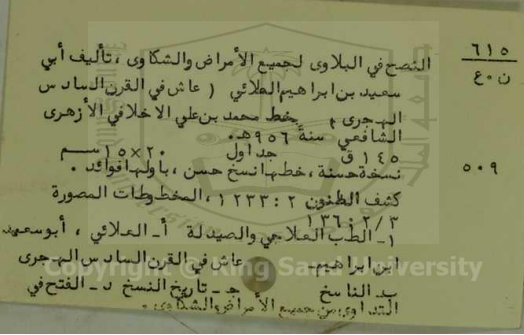 ٦١٥
ن.ع
النصح في البلاوى لجميع الأمراض والشكاوى ، تأليف أبي
سعيد بن ابراهيم العلائي ( عاش في القرن السادس
الهجرى ) بخط محمد بن علي الاخلافي الأزهرى
الشافعي سنة ٩٥٦هـ.
١٤٥ ق جداول ٢٠×١٥ سم
٥٠٩
نسخة حسنة ، خطها نسخ حسن ، بأولها فوائد .
كشف الظنون ٢ : ١٢٣٣ ، المخطوطات المصورة
٣/٢ : ١٣٦
١ـ الطب العلاجي والصيدلة أـ العلائي ، أبوسعيد
ابن ابراهيم ـ عاش في القرن السادس الهجرى
بـ الناسخ جـ ـ تاريخ النسخ د ـ الفتح في
التداوى من جميع الأمراض والشكاوى .
Copyright © King Saud University